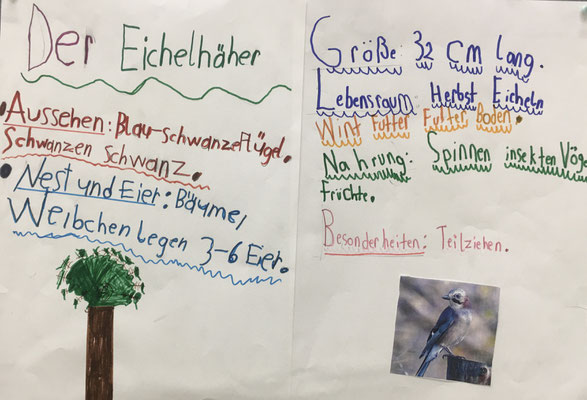 Der Eichelhäher
Aussehen: Blau-schwanzeflügel.
Schwanzen Schwanz.
Nest und Eier: Bäume,
Weibchen legen 3-6 Eier.
Größe: 32 cm lang.
Lebensraum: Herbst Eicheln
Wint Futter Futter Boden.
Nahrung: Spinnen insekten Vöge
früchte.
Besonderheiten: Teilziehen.